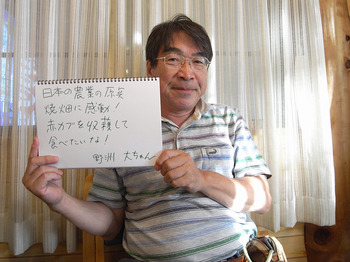 日本の農業の原点
焼畑に感動！
赤カブを収穫して
食べたいな！
野洲 大ちゃん